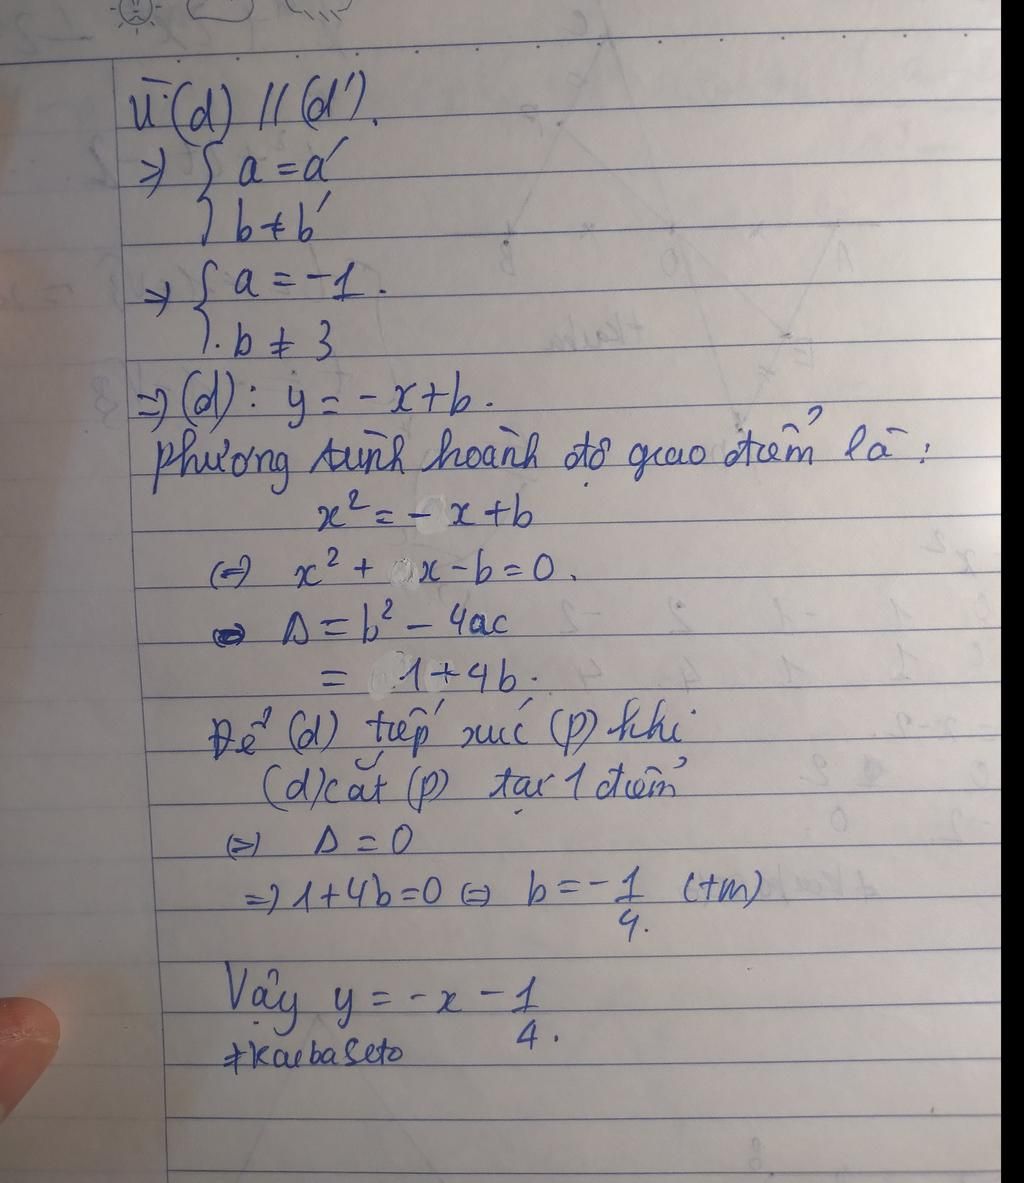 Vì (d) // (d').
=> { a = a'
b ≠ b'
=> { a = -1.
b ≠ 3
=> (d): y = -x+b.
phương trình hoành độ giao điểm là:
x² = - x+b
(=) x² + x-b=0.
Δ = b² - 4ac
= 1+4b.
Để (d) tiếp xúc (p) khi
(d) cắt (p) tại 1 điểm
(=) Δ = 0
=> 1+4b=0 (=) b = -1/4 (tm)
Vậy y = -x - 1/4.
#KaibaSeto